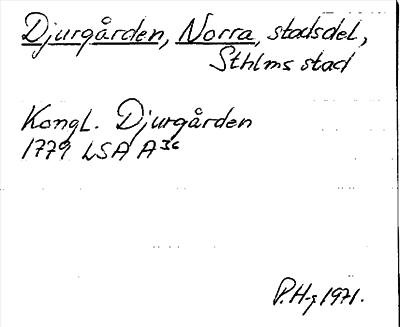 Djurgården, Norra, stadsdel,
Sthlms stad
Kongl. Djurgården
1779 LSA A36
P.H-g 1971.